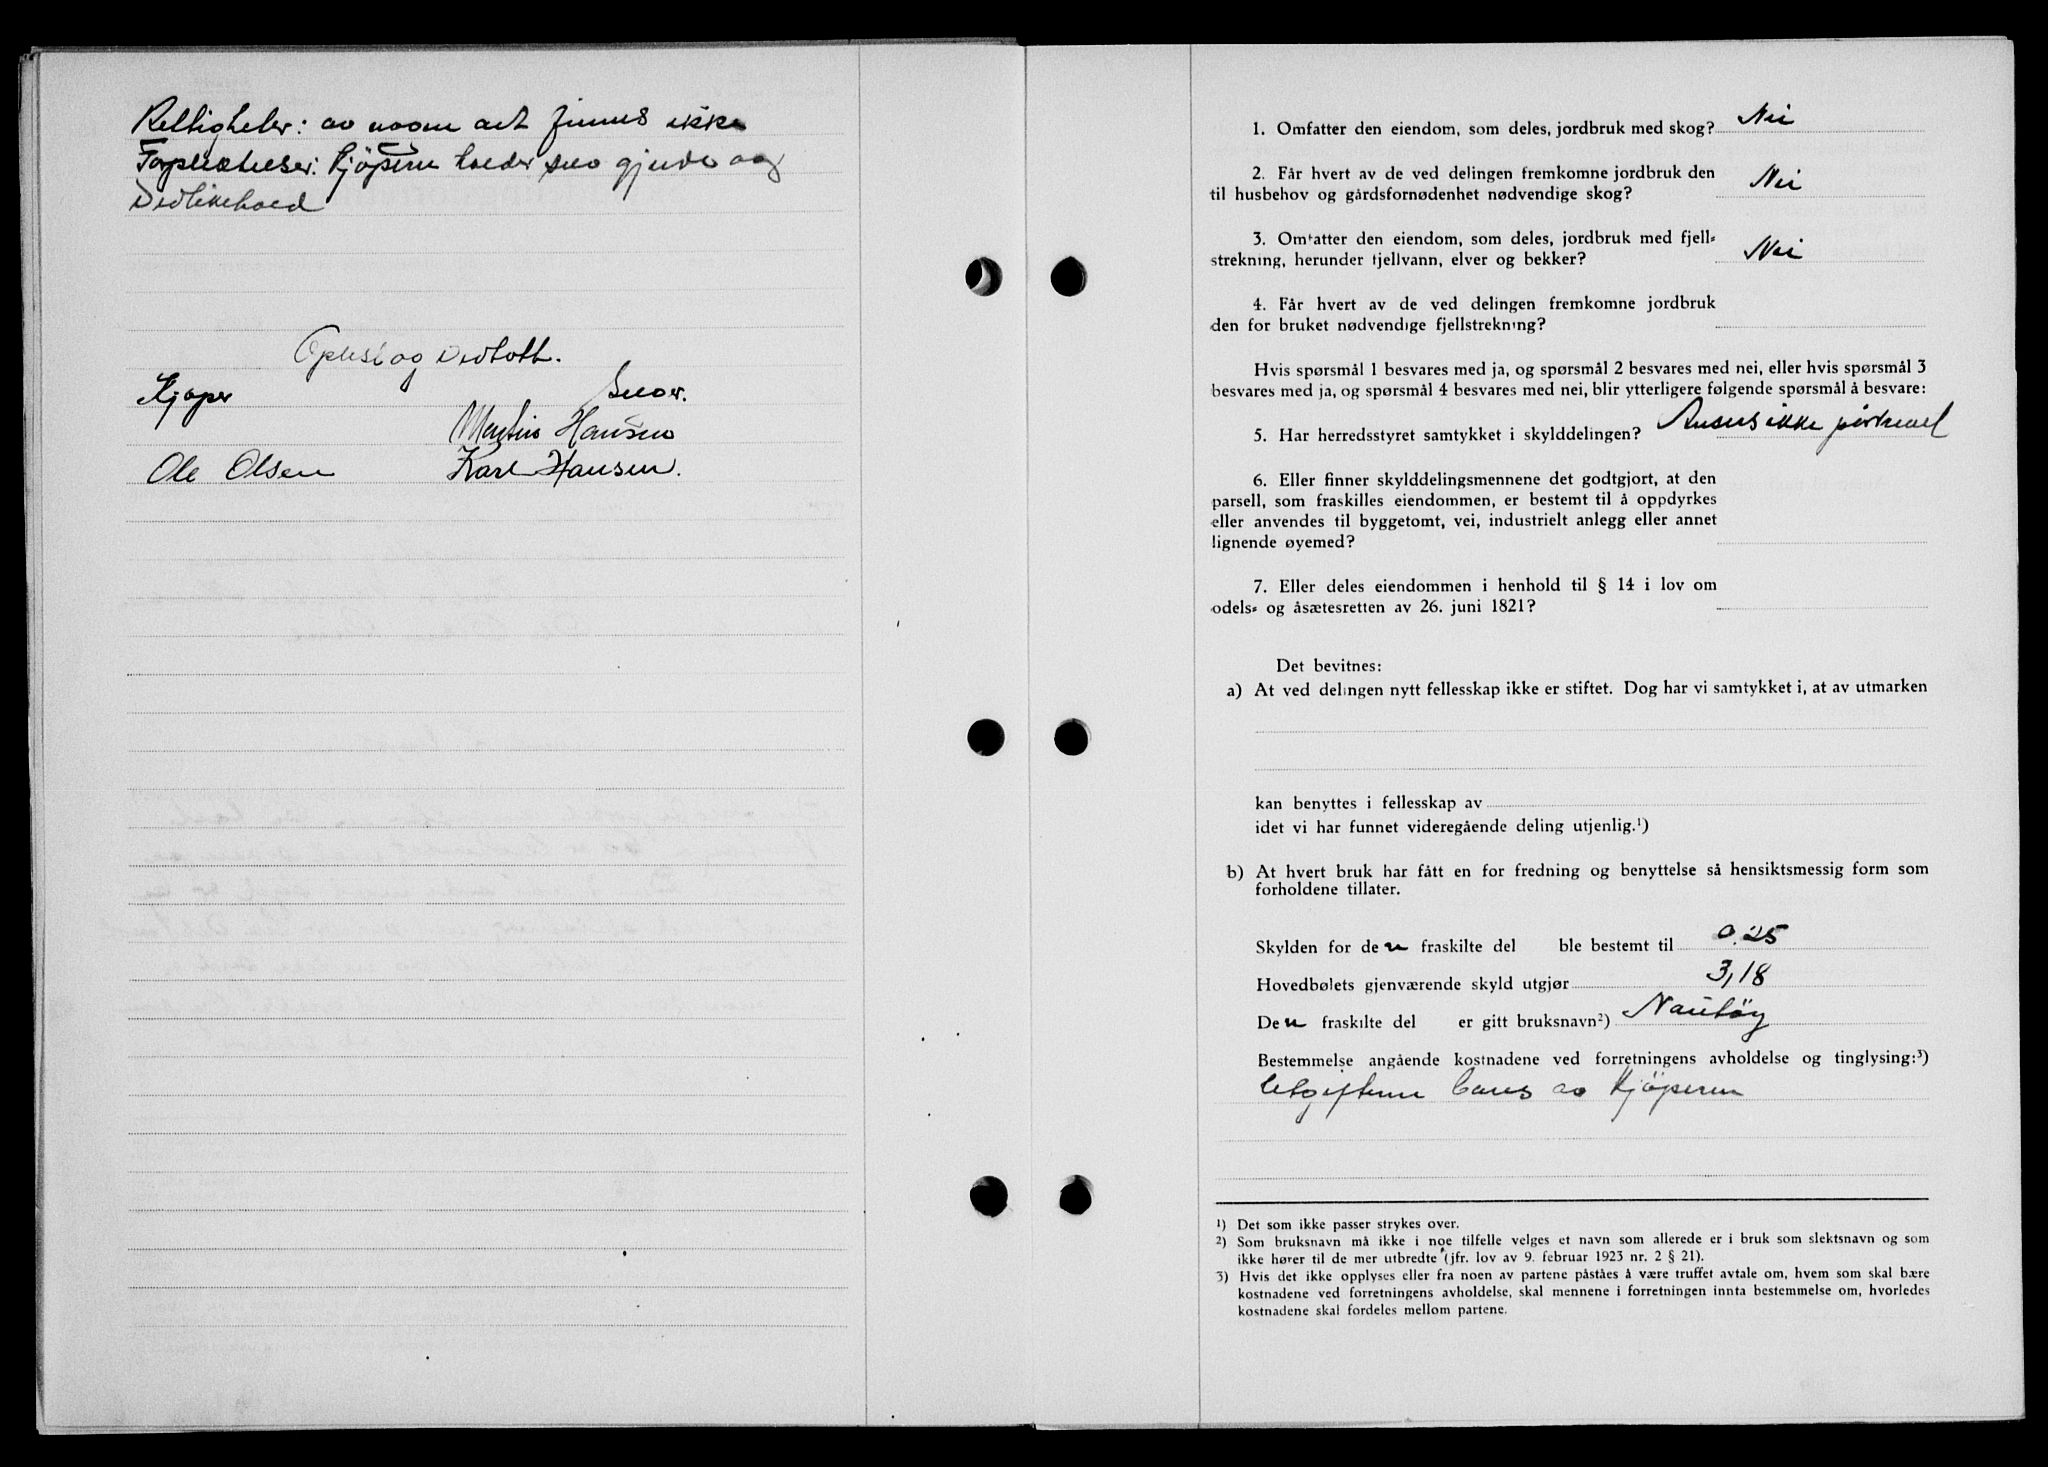 Rettigheter: av noen art finnes ikke
Forpliktelser: Kjøperen holder selv gjerde og
Vedlikehold
Oplest og Vedtatt.
Kjøper Selger.
Martin Hansen
Ole Olsen Karl Hansen.
1. Omfatter den eiendom, som deles, jordbruk med skog? Nei
2. Får hvert av de ved delingen fremkomne jordbruk den
til husbehov og gårdsfornødenhet nødvendige skog? Nei
3. Omfatter den eiendom, som deles, jordbruk med fjell=
strekning, herunder fjellvann, elver og bekker? Nei
4. Får hvert av de ved delingen fremkomne jordbruk
den for bruket nødvendige fjellstrekning?
Hvis spørsmål 1 besvares med ja, og spørsmål 2 besvares med nei, eller hvis spørsmål 3
besvares med ja, og spørsmål 4 besvares med nei, blir ytterligere følgende spørsmål å besvare:
5. Har herredsstyret samtykket i skylddelingen? Ansees ikke påkrevet
6. Eller finner skylddelingsmennene det godtgjort, at den
parsell, som fraskilles eiendommen, er bestemt til å oppdyrkes
eller anvendes til byggetomt, vei, industrielt anlegg eller annet
lignende øyemed?
7. Eller deles eiendommen i henhold til § 14 i lov om
odels= og åsætesretten av 26. juni 1821?
Det bevitnes:
a) At ved delingen nytt fellesskap ikke er stiftet. Dog har vi samtykket i, at av utmarken
kan benyttes i fellesskap av
idet vi har funnet videregående deling utjenlig.¹)
b) At hvert bruk har fått en for fredning og benyttelse så hensiktsmessig form som
forholdene tillater.
Skylden for den fraskilte del ble bestemt til 0.25
Hovedbølets gjenværende skyld utgjør 3,18
Den fraskilte del er gitt bruksnavn²)
Bestemmelse angående kostnadene ved forretningens avholdelse og tinglysing:³)
Utgiftene bæres av Kjøperen
¹) Det som ikke passer strykes over.
²) Som bruksnavn må ikke i noe tilfelle velges et navn som allerede er i bruk som slektsnavn og som
ikke hører til de mer utbredte (jfr. lov av 9. februar 1923 nr. 2 § 21).
³) Hvis det ikke opplyses eller fra noen av partene påståes å være truffet avtale om, hvem som skal bære
kostnadene ved forretningens avholdelse, skal mennene i forretningen innta bestemmelse om, hvorledes
kostnadene skal fordeles mellom partene.